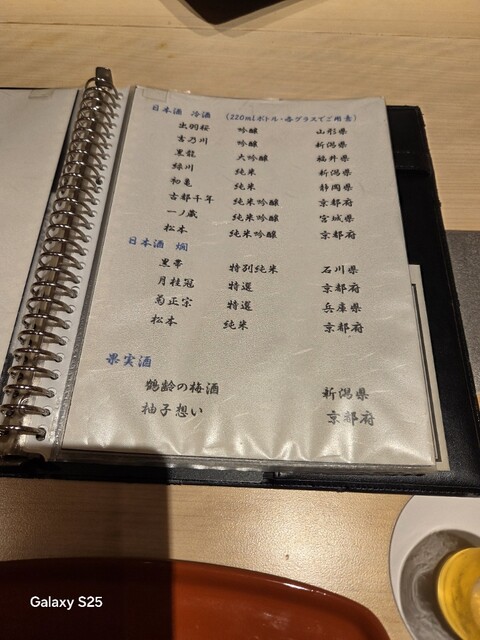 日本酒 冷酒 (220mlボトル・赤グラスでご用意)
出羽桜 吟醸 山形県
吉乃川 吟醸 新潟県
黒龍 大吟醸 福井県
緑川 純米 新潟県
初亀 純米 静岡県
古都千年 純米吟醸 京都府
一ノ蔵 純米吟醸 宮城県
松本 純米吟醸 京都府
日本酒 燗
黒帯 特別純米 石川県
月桂冠 特選 京都府
菊正宗 特選 兵庫県
松本 純米 京都府
果実酒
鶴齢の梅酒 新潟県
柚子想い 京都府
Galaxy S25